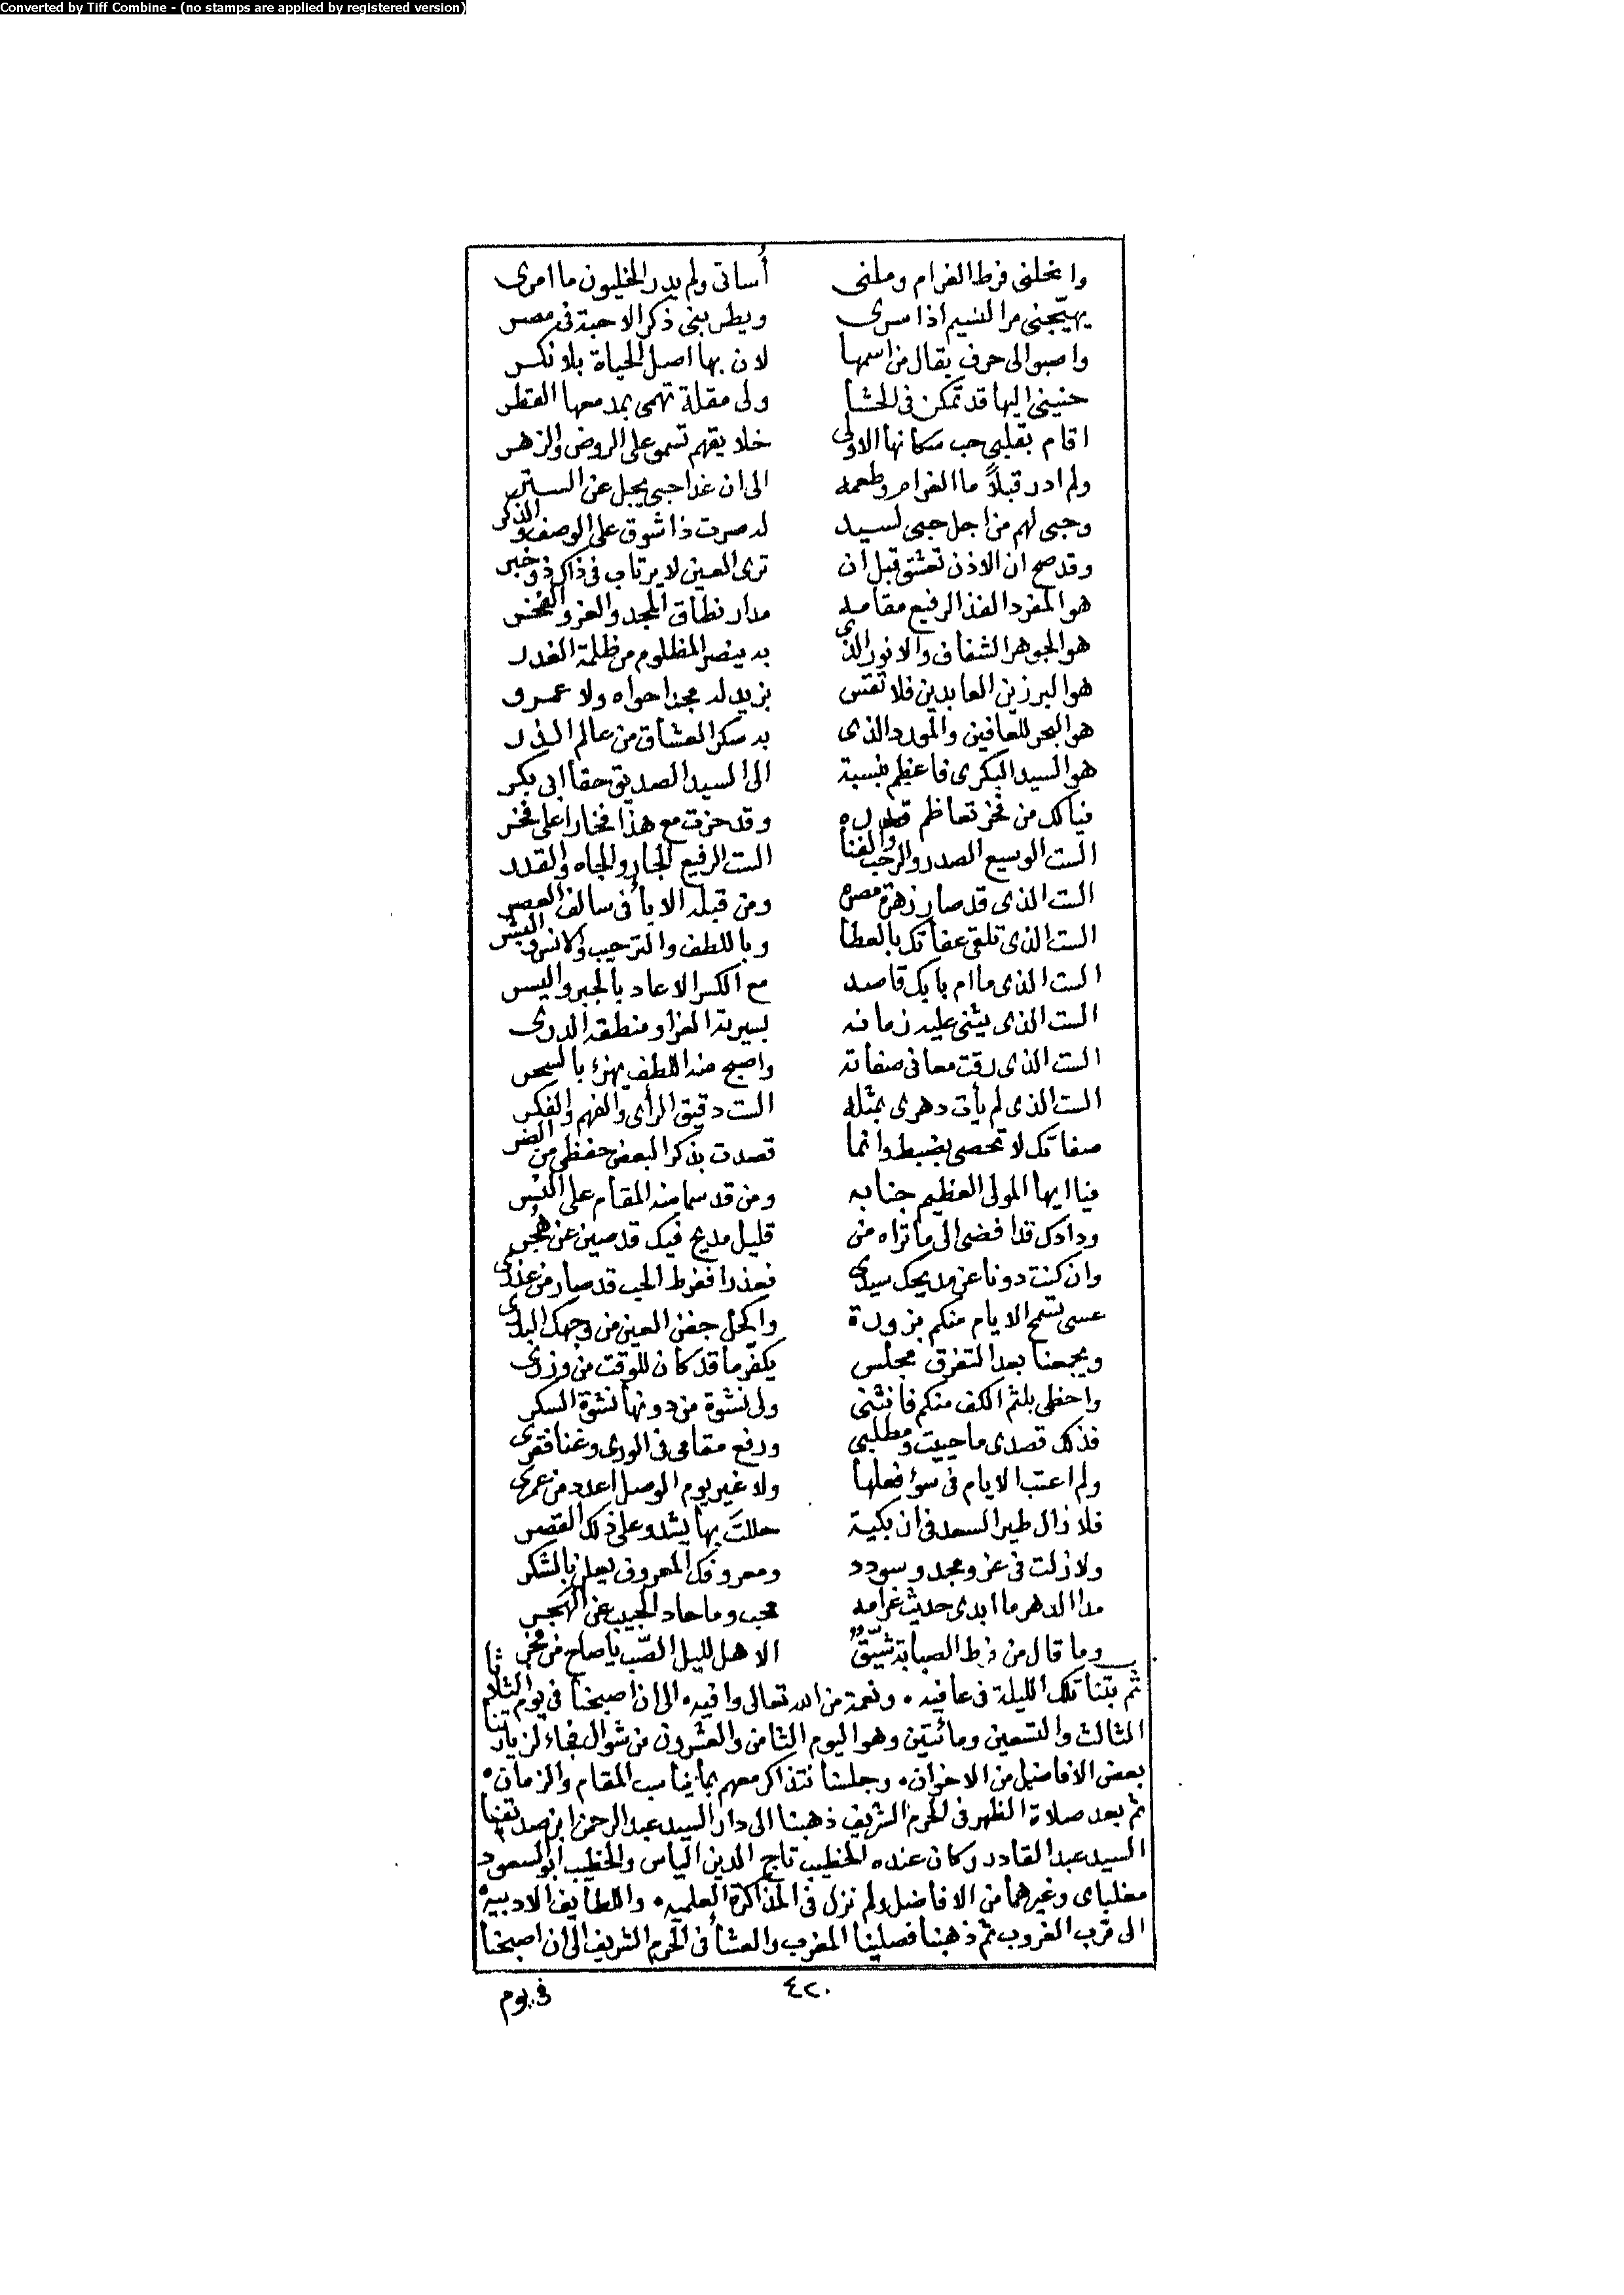 Converted by Tiff Combine - (no stamps are applied by registered version)
وانحلنى فرط الغرام وملنى أساتى ولم يدر الخليون ما امرى
يهيّجنى مر النسيم اذا سرى ويطربنى ذكر الاحبة فى مصر
واصبو الى حرف يقال من اسمها لان بها اصل الحياة بلا نكر
حنينى اليها قد تمكن فى الحشا ولى مقلة تهمى بمدمعها القطر
اقام بقلبى حب سكانها الاولى خلايقهم تسمو على الروض والزهر
ولم ادر قبلاً ما الغرام وطعمه الى ان غدا حبى يجل عن الستر
وحبى لهم من اجل حبى لسيد له صرت ذا شوق على الوصف والذكر
وقد صح ان الاذن تعشق قبل ان ترى العين لا يرتاب فى ذاك ذو خبر
هو المفرد الفذ الرفيع مقامه مدار نطاق المجد والعز والفخر
هو الجوهر الشفاف والانور الذى به ينصر المظلوم من ظلمة الغدر
هو البر زين العابدين فلا تقس بزيد له مجدا حواه ولا عمرو
هو البحر للعافين والمورد الذى به سكر العشاق من عالم الذر
هو السيد البكرى فاعظم بنسبة الى السيد الصديق حقا ابى بكر
فيالك من فخر تعاظم قدره وقد حزت مع هذا فخارا على فخر
الست الوسيع الصدر والرحب والفنا الست الرفيع الجار والجاه والقدر
الست الذى قد صار زهرة مصره ومن قبله الابأ فى سالف العصر
الست الذى تلقى عفاتك بالعطا وباللطف والترحيب والانس والبشر
الست الذى ما ام بابك قاصد مع الكسر الا عاد بالجبر واليسر
الست الذى يثنى عليه زمانه بسيرته الغرا ومنطقه الدرى
الست الذى رقت معانى صفاته واصبح منه اللطف يهزء بالسحر
الست الذى لم يأت دهرى بمثله الست دقيق الرأى والفهم والفكر
صفاتك لا تحصى بضبط وانما قصدت بذكر البعض حفظى من الضر
فيا ايها المولى العظيم جنابه ومن قد سما منه المقام على النسر
ودادك قد افضى الى ما تراه من قليل مديح فيك قد صين عن هُجر
وان كنت دونا عن مديحك سيدى فعذرا ففرط الحب قد صار من عذرى
عسى تسمح الايام منكم بزورة واكحل جفن العين من وجهك البدرى
ويجمعنا بعد التفرق مجلس يكفّر ما قد كان للوقت من وزرى
واحظى بلثم الكف منكم فانثنى ولى نشوة من دونها نشوة السكر
فذلك قصدى ما حييت ومطلبى ورفع مقامى فى الورى وغنا فقرى
ولم اعتب الايام فى سوء فعلها ولا غير يوم الوصل اعدد من عمرى
فلا زال طير السعد فى ازبكية حللتَ بها يشدو على ذلك القصر
ولا زلت فى عز ومجد وسودد ومعروفك المعروف يعلن بالشكر
مدا الدهر ما ابدى حديث غرامه محب وما حاد الحبيب عن الهجر
وما قال من فرط الصبابة شيّق الا هل لليل الصّب يا صاح من فجر
ثم بتنا تلك الليلة فى عافيه ٠ ونعمة من الله تعالى وافيه الى ان اصبحنا فى يوم الثلاثا
الثالث والتسعين ومائتين وهو اليوم الثامن والعشرون من شوال فجاء لزيارتنا
بعض الافاضل من الاخوان ٠ وجلسنا نتذاكر معهم بما يناسب المقام والزمان ٠
ثم بعد صلاة الظهر فى الحرم الشريف ذهبنا الى دار السيد عبد الرحمن ابن صديقنا
السيد عبد القادر وكان عنده الخطيب تاج الدين الياس والخطيب ابو السعود
مغلباى وغيرهما من الافاضل ولم نزل فى المذاكرة العلميه ٠ واللطايف الادبيه
الى قرب الغروب ثم ذهبنا فصلينا المغرب والعشأ فى الحرم الشريف الى ان اصبحنا
٤٢٠
فى يوم